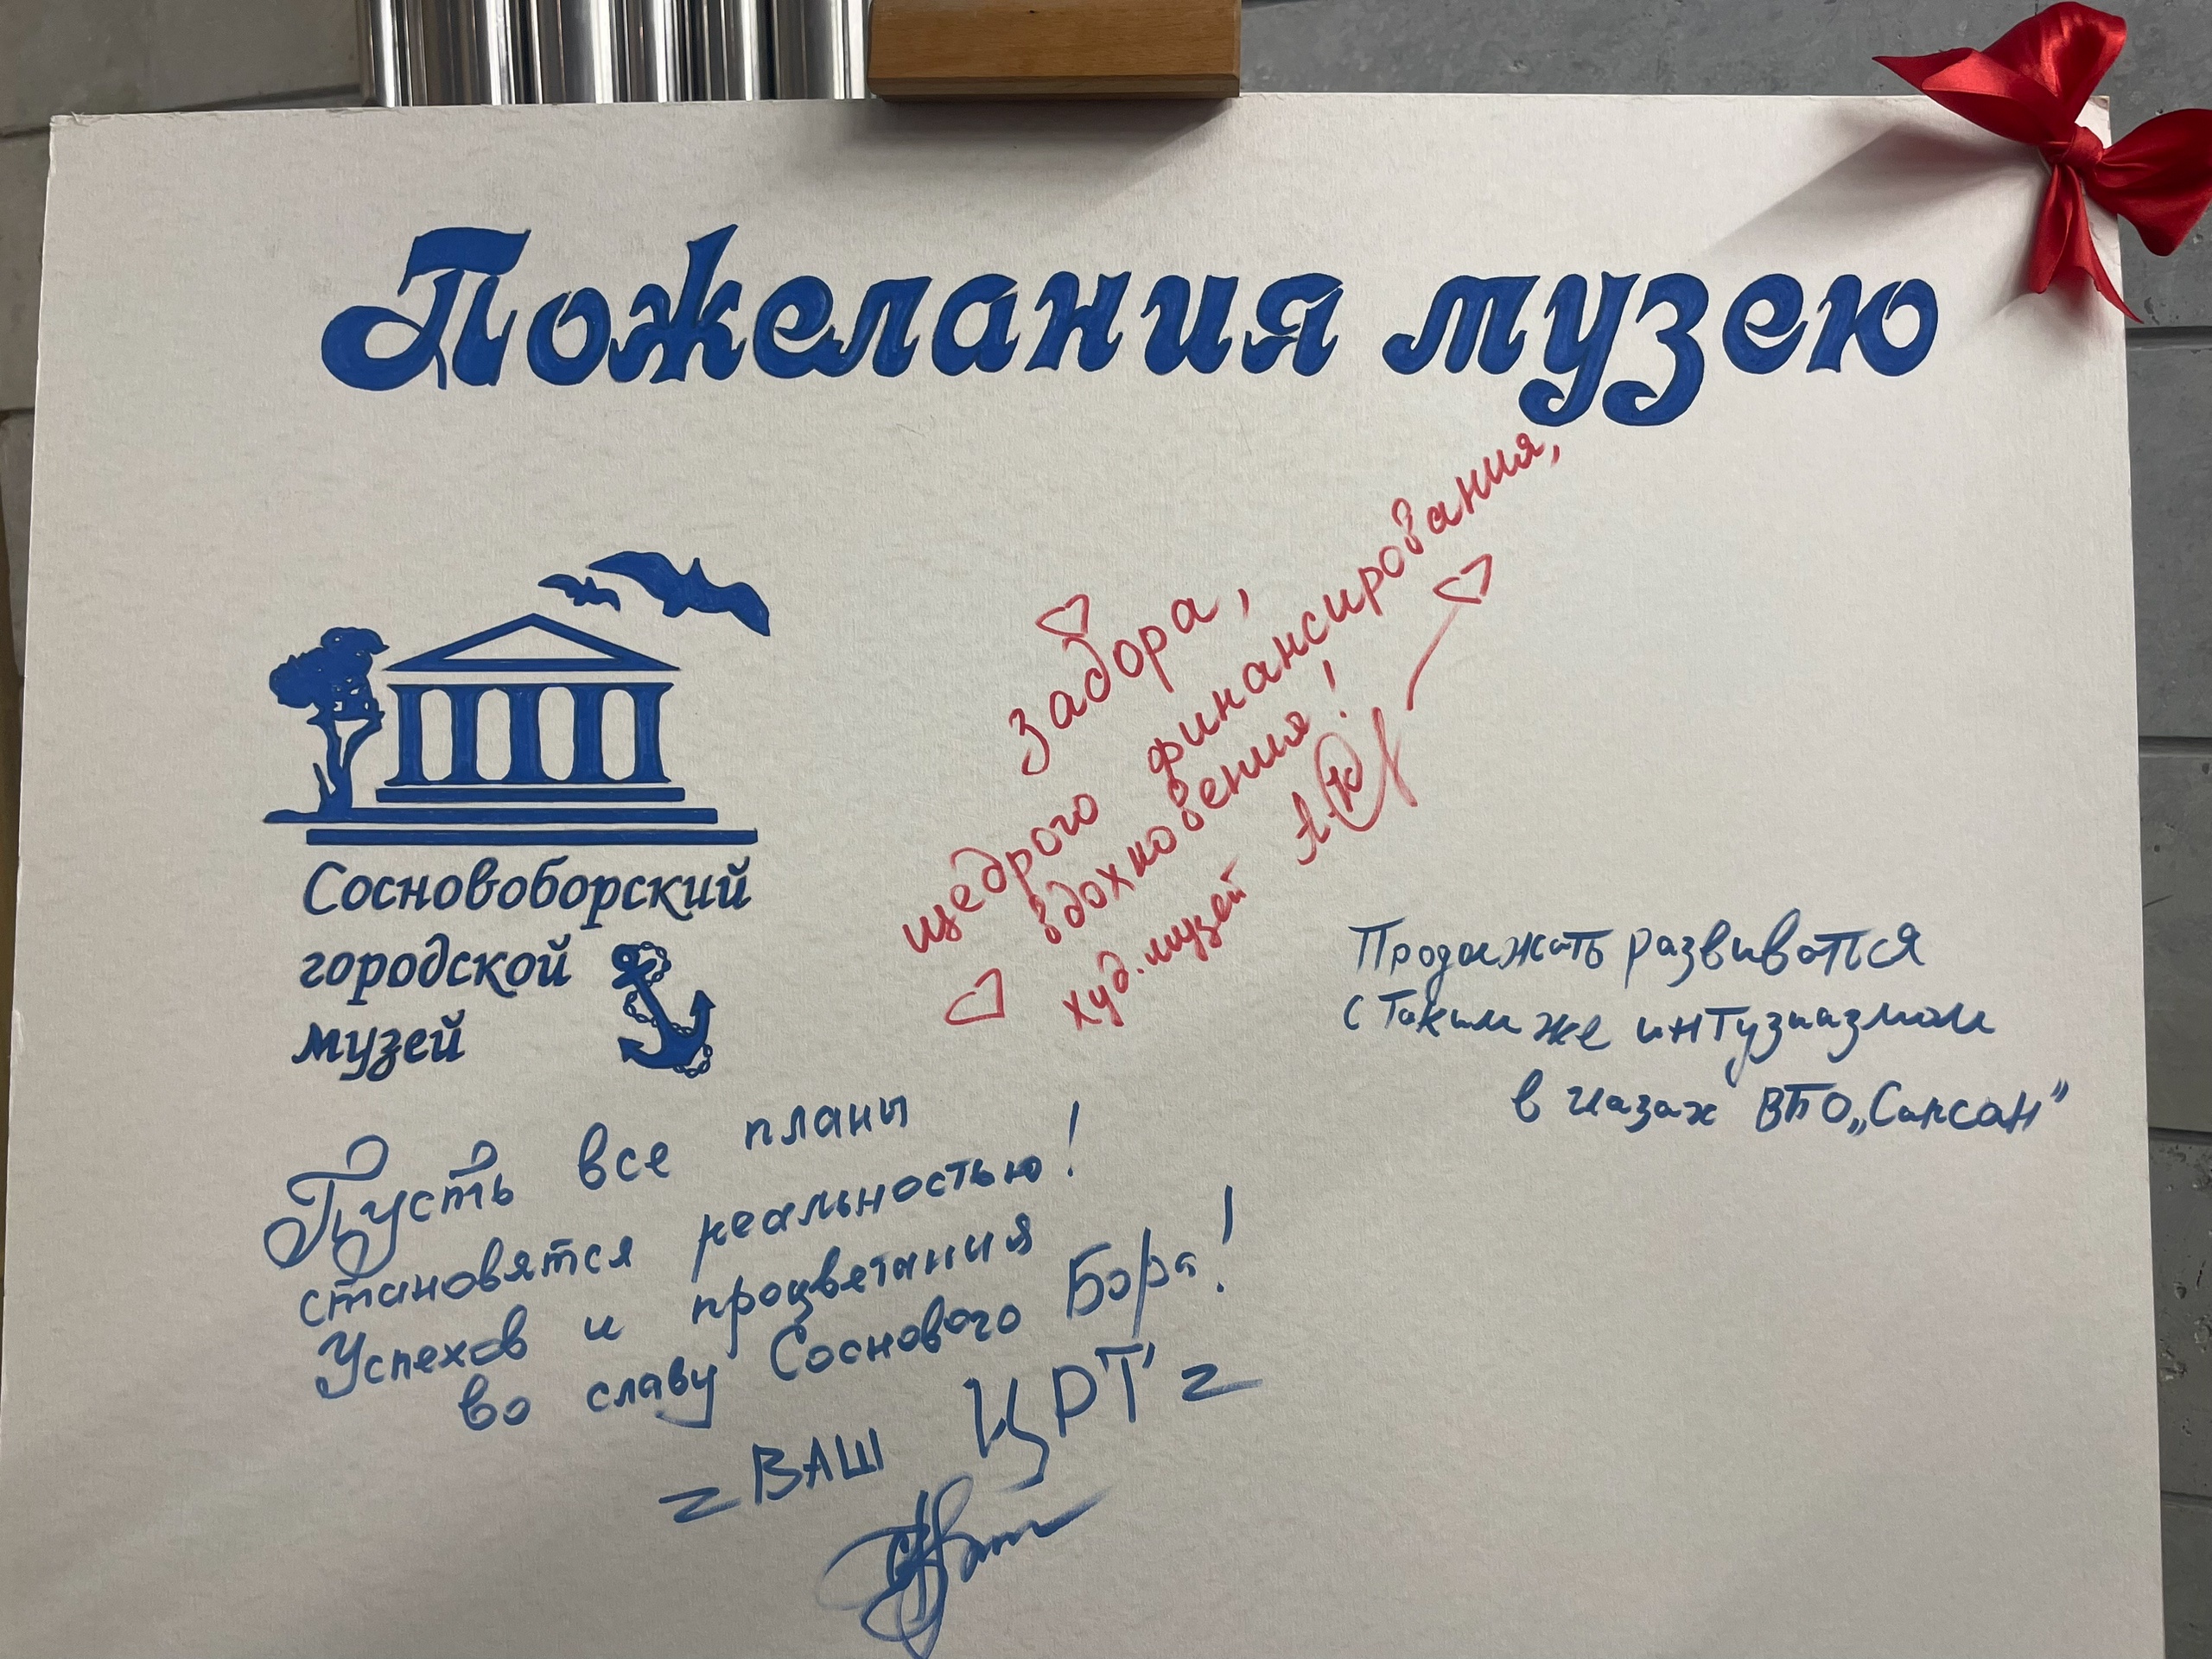 Пожелания музею
Сосновоборский
городской
музей
задора,
щедрого финансирования,
вдохновения!
худ. музей
Продолжать развиваться
с таким же интузиазмом
в глазах ВПО „Сапсан”
Пусть все планы
становятся реальностью!
Успехов и процветания
во славу Соснового Бора!
ВАШ ЦРТ